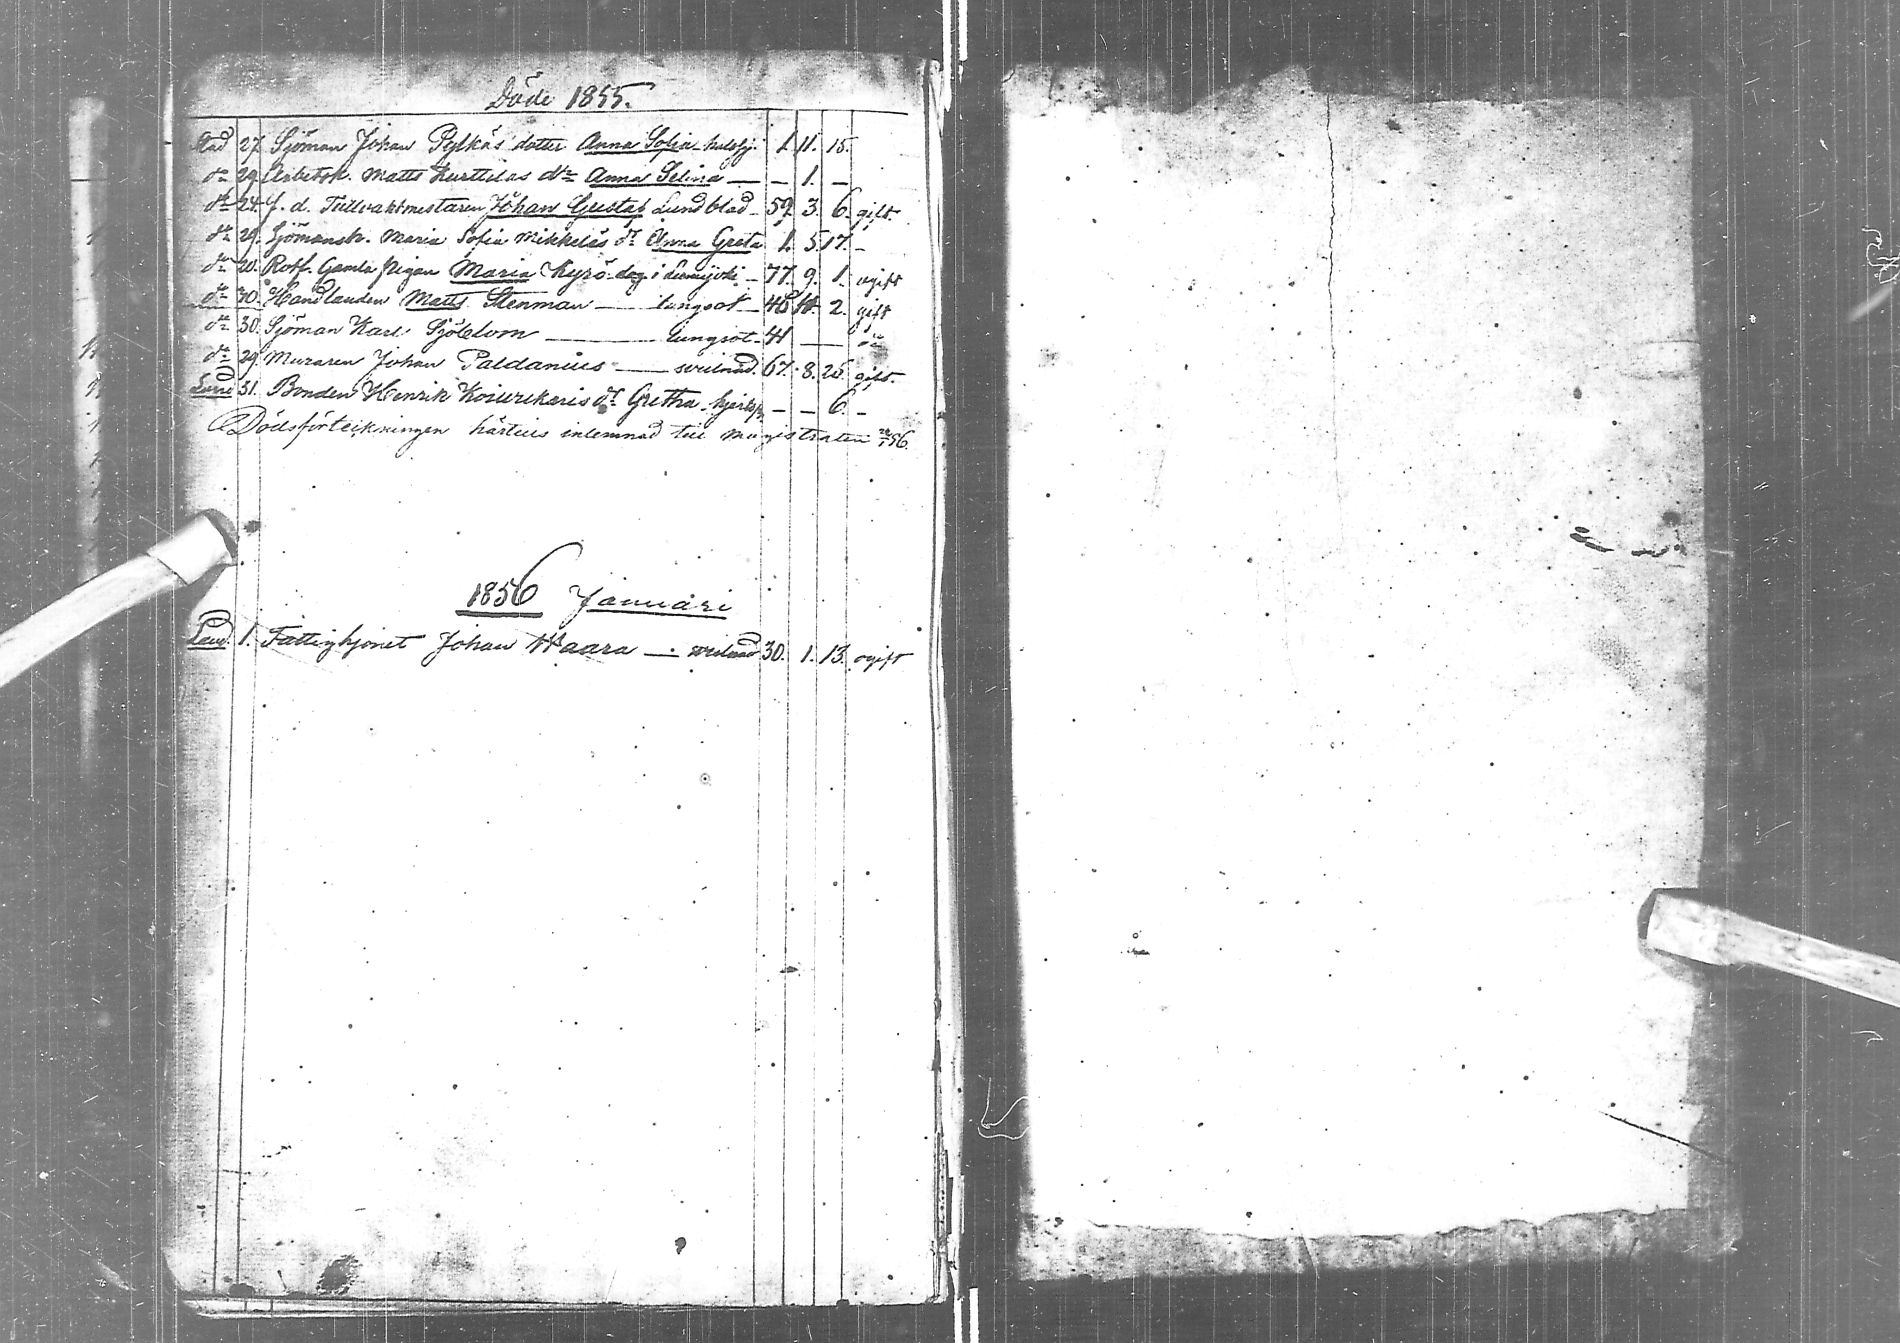 Döde 1855.
Stad 27. Sjöman Johan Pylkäs dotter Anna Sofia 1. 11. 15.
dº 29. Arbetsk. Matts Kurttilas dº Anna Selina — — 1. —
dº 24. f. d. Tullvaktmestaren Johan Gustaf Lundblad — 59. 3. 6. gift
dº 29. Sjömansk. Maria Sofia Mikkeläs dr Anna Greta 1. 5. 17. —
dº 20. Rotf. Gamla pigan Maria Kyrö 77. 9. 1. ogift
dº 30. Handlanden Matts Stenman — lungsot — 2. gift
dº 30. Sjöman Karl — lungsot — 41 — dº
dº 29. Muraren Johan Paldanius — svulnad. 67. 8. 25 gift.
Land 31. Bonden Henrik dr Gretha — — 6. —
Dödsförteikningen härtills inlemnad till Magistraten 56.
1856 Januari
Land. 1. Fattighjonet Johan Waara — svulnad 30. 1. 13. ogift